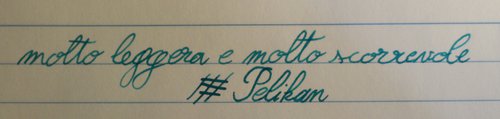 molto leggera e molto scorrevole
# Pelikan